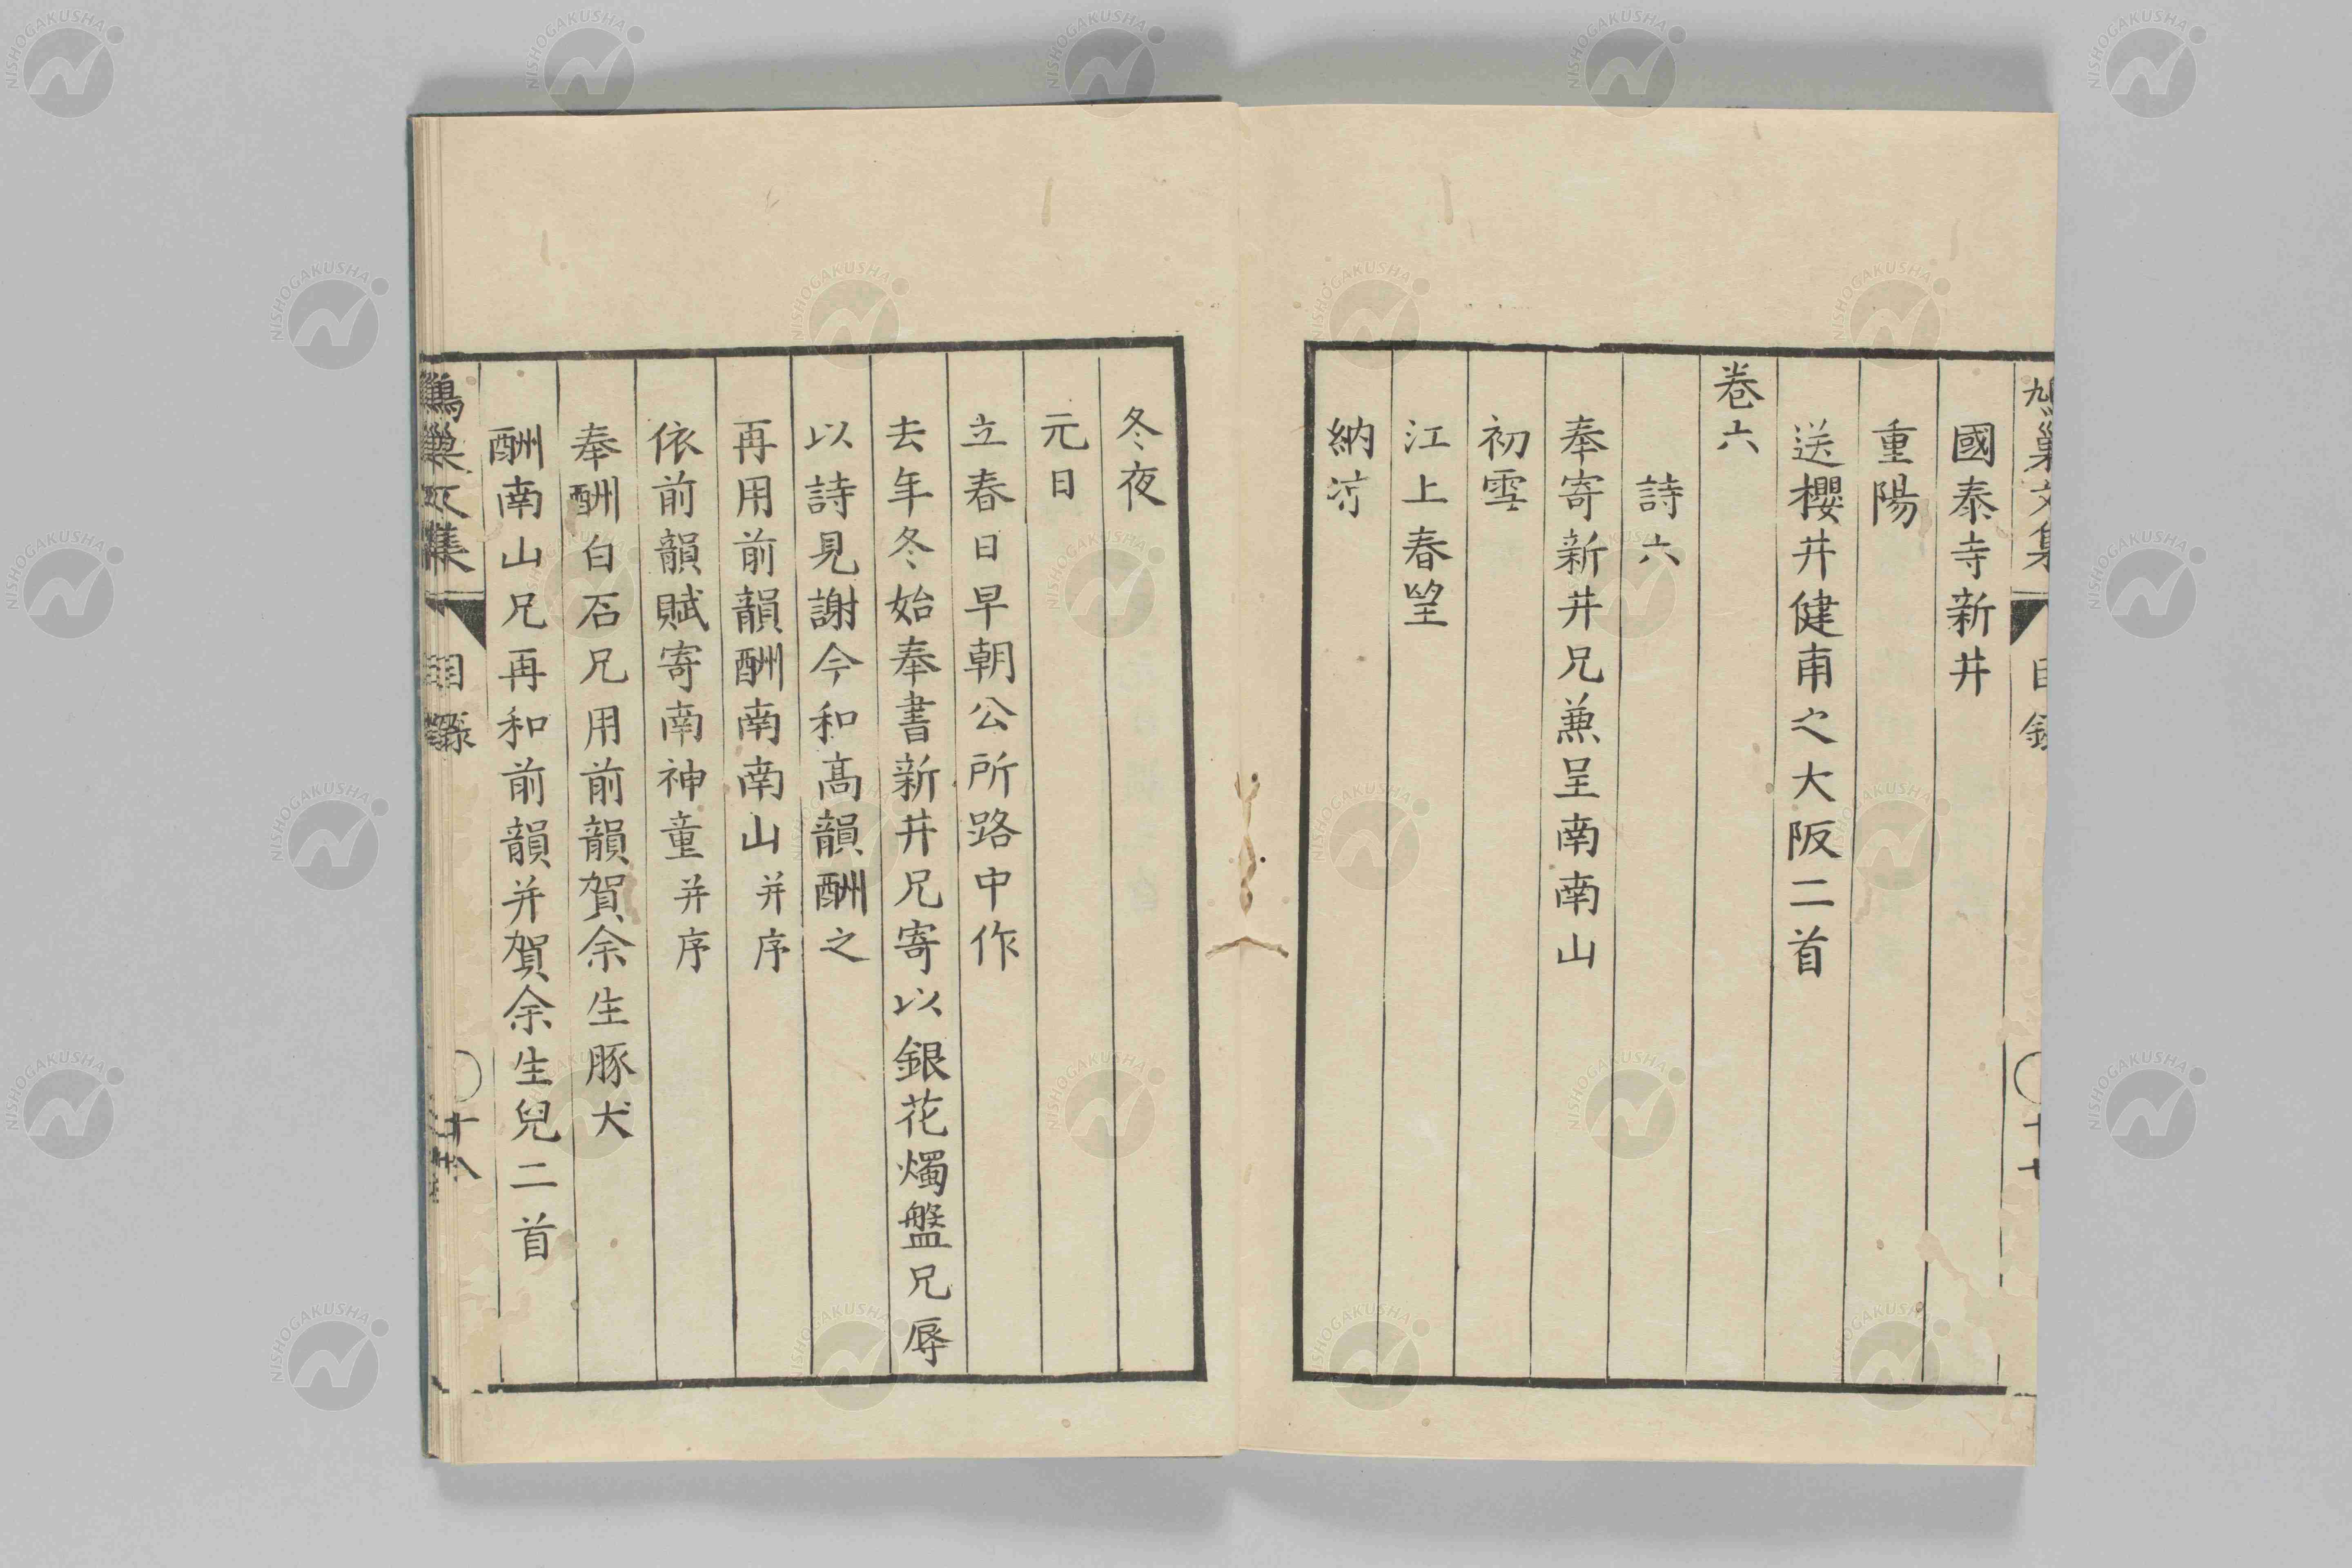 國泰寺新井
重陽
送櫻井健甫之大阪二首
卷六
詩六
奉寄新井兄兼呈南南山
初雪
江上春望
納涼
冬夜
元日
立春日早朝公所路中作
去年冬始奉書新井兄寄以銀花燭盤兄辱
以詩見謝今和高韻酬之
再用前韻酬南南山并序
依前韻賦寄南神童并序
奉酬白石兄用前韻賀余生豚犬
酬南山兄再和前韻并賀余生兒二首
目錄
十八
NISHOGAKUSHA